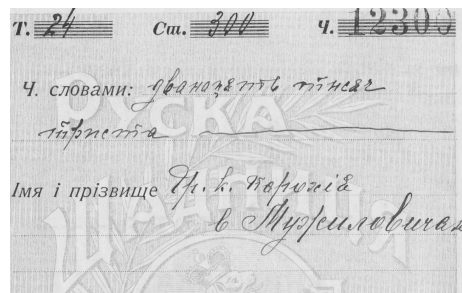 Т. 24 Ст. 300 Ч. 12300
Ч. словами: дванацять тисяч
триста
Імя і прізвище Гр. к. парохія
в Мужиловичах
РУСКА
ЩАДНИЦЯ